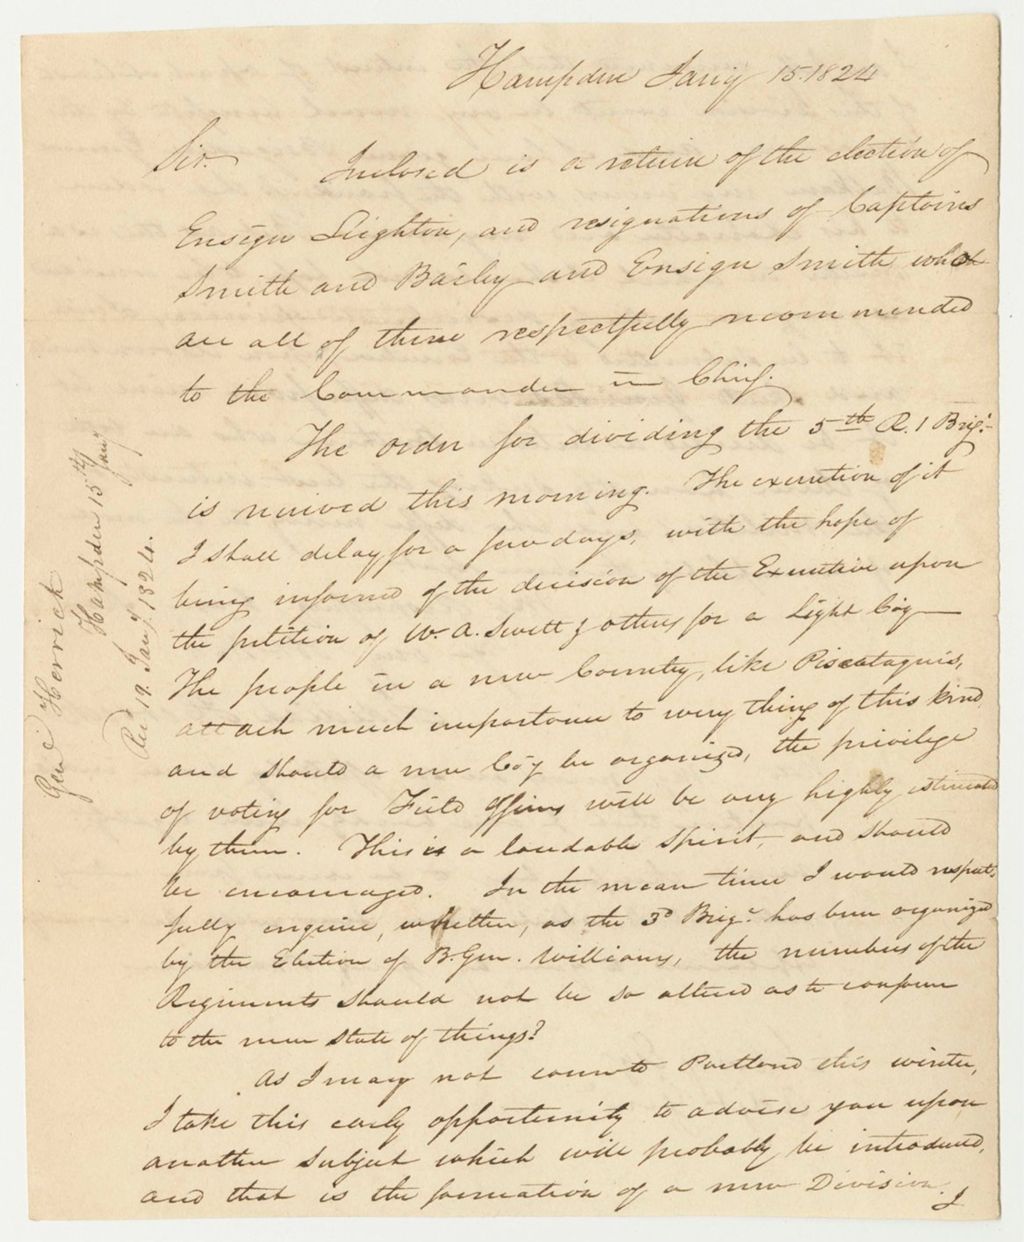 Hampden Jany 15. 1824
Sir. Inclosed is a return of the election of
Ensign Leighton, and resignations of Captains
Smith and Bailey and Ensign Smith which
are all of them respectfully recommended
to the Commander in Chief.
The order for dividing the 5th R. 1 Brig.
is received this morning. The execution of it
I shall delay for a few days, with the hope of
being informed of the decision of the Executive upon
the petition of Wm. A. Swett & others for a Light Coy
The people in a new Country, like Piscataquis,
attach much importance to every thing of this kind
and should a new Coy be organized, the privilege
of voting for Field Officers will be very highly estimated
by them. This is a laudable spirit, and should
be encouraged. In the mean time I would respect-
fully enquire, whether, as the 3d Brigr. has been organized
by the Election of B. Gen. Williams, the numbers of the
Regiments should not be so altered as to conform
to the new state of things?
As I may not come to Portland this winter,
I take this early opportunity to advise you upon
another subject which will probably be introduced,
and that is the formation of a new Division. I
Genl Herrick
Hampden 15th Jany
Recd 19 Jany. 1824.